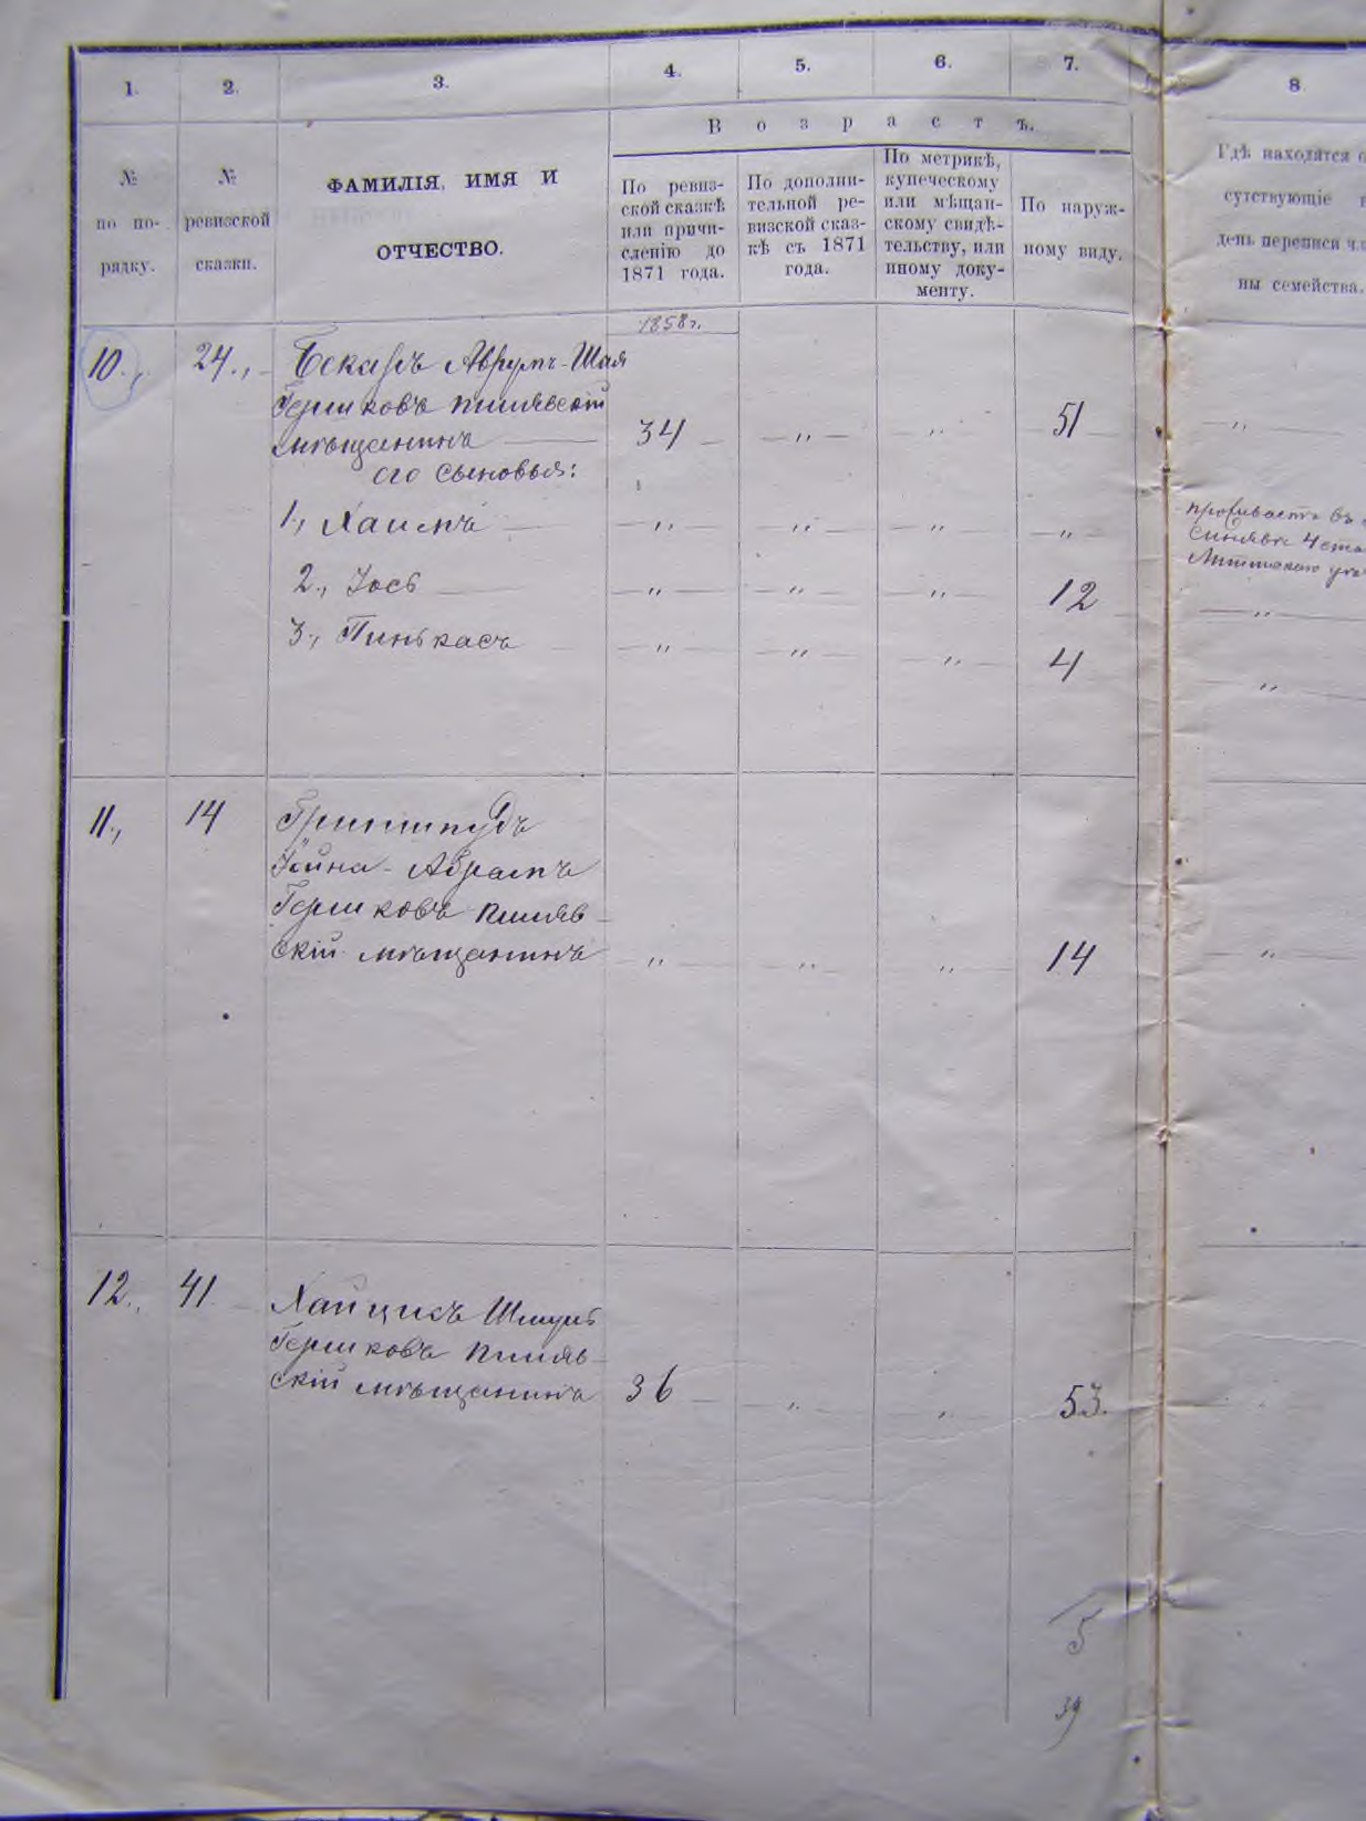 1. 2. 3. 4. 5. 6. 7. 8
Возрастъ.
№ по по- рядку.
№ ревизской сказки.
ФАМИЛІЯ, ИМЯ И
ОТЧЕСТВО.
По ревиз-
ской сказкѣ
или причи-
сленію до
1871 года.
По дополни-
тельной ре-
визской сказ-
кѣ съ 1871
года.
По метрикѣ,
купеческому
или мѣщан-
скому свидѣ-
тельству, или
иному доку-
менту.
По наруж-
ному виду.
Гдѣ находятся о
сутствующіе
день переписи чл
ны семейства.
1858 г.
10., 24., Аврумъ-Шая
Гершковъ пилявскій
мѣщанинъ 34 — „ — „ 51 — „ —
его сыновья:
1., Хаимъ — „ — „ — „ — „
проживаетъ въ
Синявке
2., Іось — „ — „ — „ 12 — „ —
3., Пинькасъ — „ — „ — „ 4 — „ —
11., 14 Гриншпудъ
Абрамъ
Гершковъ пиляв-
скій мѣщанинъ — „ — „ — „ 14 — „ —
12., 41 Хайцисъ Шмуль
Гершковъ пиляв-
скій мѣщанинъ 36 — „ — „ 53.
5
39